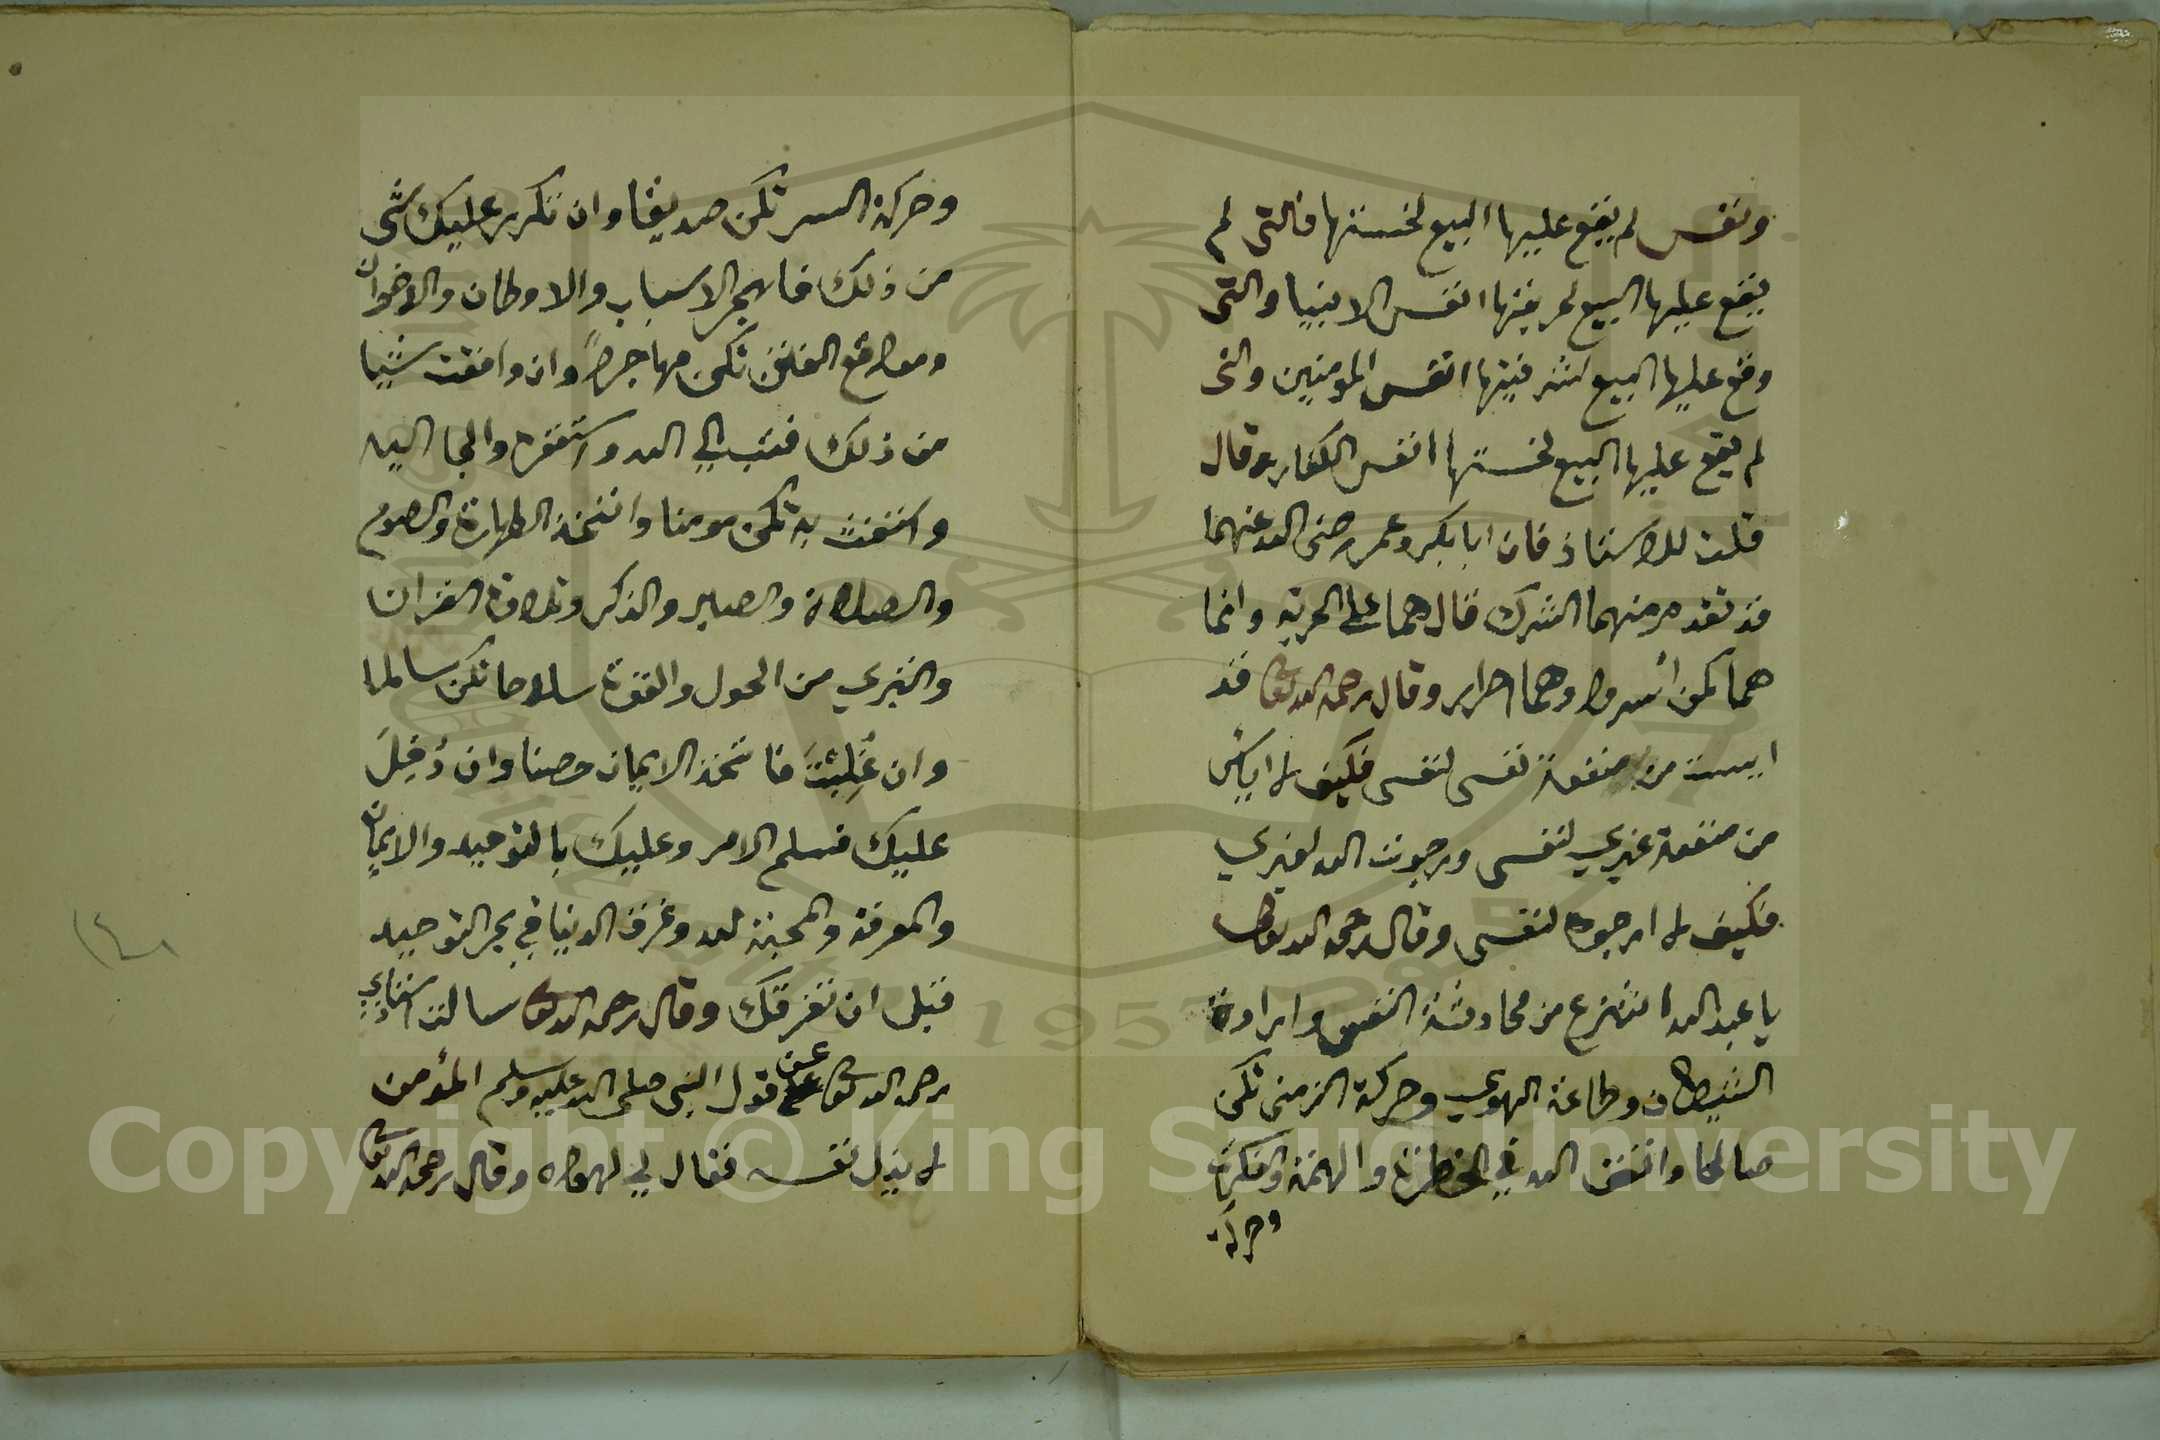 ونفس لم يقع عليها البيع لخستها فالتى لم
يقع عليها البيع لحريتها انفس الانبيا والتى
وقع عليها البيع لشرفيتها انفس المومنين والتى
لم يقع عليها البيع لخستها انفس الكفار وقال
قلت للاستاذ فان ابا بكر وعمر رضى الله عنهما
قد تقدم منهما الشرك قال هما على الحرية وانما
هما كمن أسروا وهما احرار وقال رحمه الله تعالى قد
ايست من منفعة نفسى لنفسى فكيف لا اياس
من منفعة غيري لنفسى ورجوت الله لغيري
فكيف لا ارجوه لنفسى وقال رحمه الله تعالى
يا عبد الله انتزع من محادثة النفس وارادة
الشيطان وطاعة الهوي وحركة الزمنى تكن
صالحا واتق الله في الخطرة والهمة والفكرة
وحركة
وحركة السر تكن صديقا وان تكرر عليك شى
من ذلك فاهجر الاسباب والاوطان والاخوان
ومواقع الفتن تكن مهاجرا وان وافقت شيا
من ذلك فتب الي الله واستغفره والجا اليه
واستغث به تكن مومنا واتخذ الطهارة والصوم
والصلاة والصبر والذكر وتلاوة القران
والتبري من الحول والقوة سلاحا تكن سالما
وان غُلِبْتَ فاتخذ الايمان حصنا وان دُخِلَ
عليك فسلم الامر وعليك بالتوحيد والايمان
والمعرفة والمحبة لله وغرق الدنيا في بحر التوحيد
قبل ان تغرقك وقال رحمه الله تعالى سالت استاذي
رحمه الله تعالى عن قول النبى صلى الله عليه وسلم المؤمن
لا يذل نفسه فقال لي لهواه وقال رحمه الله تعالى
Copyright © King Saud University
1957